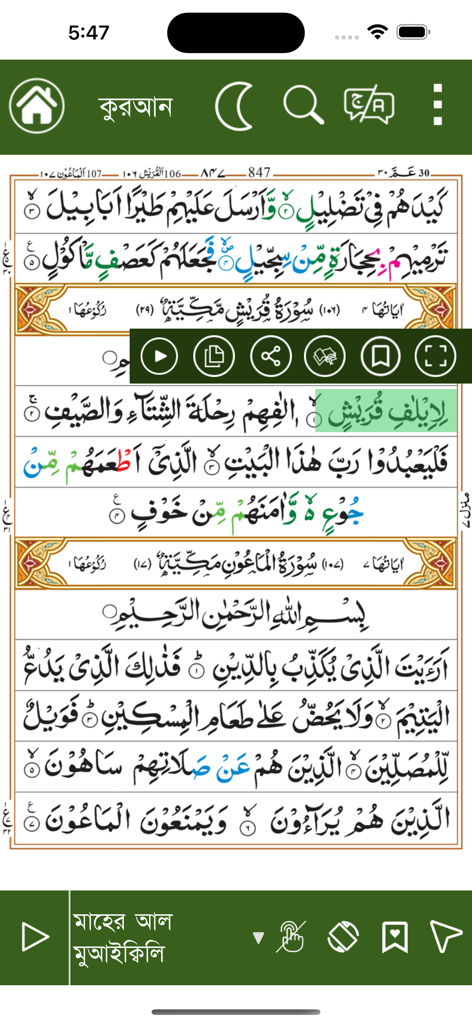 5:47
কুরআন
ج A
107 اَلْمَاعُوْن ١٠٧ 106 اَلْقُرَيْش ١٠٦ ٨٤٧ 847 عَـمَّ ٣٠ 30
كَيْدَهُمْ فِيْ تَضْلِيْلٍ ۙ‏﴿۲﴾ وَّاَرْسَلَ عَلَيْهِمْ طَيْرًا اَبَابِيْلَ ۙ‏﴿۳﴾
تَرْمِيْهِمْ بِحِجَارَةٍ مِّنْ سِجِّيْلٍ ۙ‏﴿۴﴾ فَجَعَلَهُمْ كَعَصْفٍ مَّاْكُوْلٍ ‏﴿۵﴾
اٰيَاتُهَا ٤ (١٠٦) سُوْرَةُ قُرَيْشٍ مَّكِّيَّةٌ (٢٩) رُكُوْعُهَا ١
لِاِيْلٰفِ قُرَيْشٍ ۙ‏﴿۱﴾ اٖلٰفِهِمْ رِحْلَةَ الشِّتَآءِ وَالصَّيْفِ ۚ‏﴿۲﴾
فَلْيَعْبُدُوْا رَبَّ هٰذَا الْبَيْتِ ۙ‏﴿۳﴾ الَّذِيْۤ اَطْعَمَهُمْ مِّنْ
جُوْعٍ ۙ۬ وَّاٰمَنَهُمْ مِّنْ خَوْفٍ ‏﴿۴﴾
مَنْزِل ٧
اٰيَاتُهَا ٧ (١٠٧) سُوْرَةُ الْمَاعُوْنِ مَكِّيَّةٌ (١٧) رُكُوْعُهَا ١
بِسْمِ اللّٰهِ الرَّحْمٰنِ الرَّحِيْمِ
اَرَءَيْتَ الَّذِيْ يُكَذِّبُ بِالدِّيْنِ ؕ‏﴿۱﴾ فَذٰلِكَ الَّذِيْ يَدُعُّ
الْيَتِيْمَ ۙ‏﴿۲﴾ وَلَا يَحُضُّ عَلٰى طَعَامِ الْمِسْكِيْنِ ؕ‏﴿۳﴾ فَوَيْلٌ
لِّلْمُصَلِّيْنَ ۙ‏﴿۴﴾ الَّذِيْنَ هُمْ عَنْ صَلَاتِهِمْ سَاهُوْنَ ۙ‏﴿۵﴾
الَّذِيْنَ هُمْ يُرَآءُوْنَ ۙ‏﴿۶﴾ وَيَمْنَعُوْنَ الْمَاعُوْنَ ‏﴿۷﴾
মাহের আল
মুআইক্বিলি